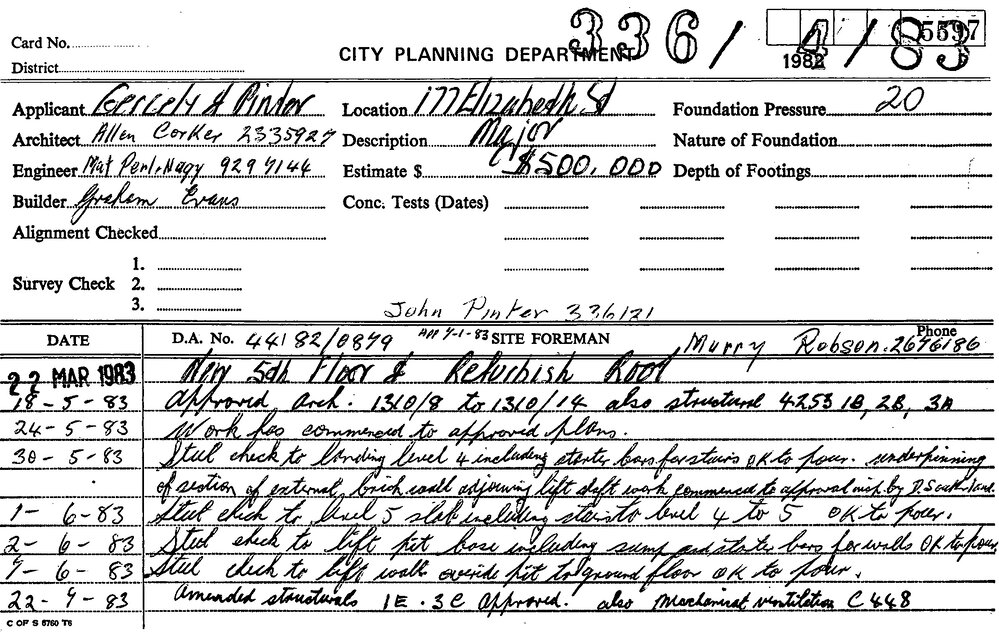 336/4/83
5597
Card No.
1982
District
CITY PLANNING DEPARTMENT
Applicant Gergely & Pinter Location 177 Elizabeth St Foundation Pressure 20
Architect Allen Corker 2335927 Description Major Nature of Foundation
Engineer Mat Perl. Nagy 929 7144 Estimate $ $500,000 Depth of Footings
Builder Graham Evans Conc. Tests (Dates)
Alignment Checked
1.
Survey Check 2.
3.
John Pinter 336121
DATE D.A. No. 44 182/0879 App 7-1-83 SITE FOREMAN Murry Robson. Phone 2676186
22 MAR 1983 New 5th Floor & Refurbish Roof
18-5-83 Approved Arch: 1310/8 to 1310/14 also structural 4253 1B, 2B, 3A
24-5-83 Work has commenced to approved plans.
30-5-83 Steel check to landing level 4 including starter bars for stairs OK to pour. underpinning
of section of external brick wall adjoining lift shaft work commenced to approval by D.
1-6-83 Steel check to level 5 slab including stairs to level 4 to 5 OK to pour.
2-6-83 Steel check to lift pit base including sump and starter bars for walls OK to pour
7-6-83 Steel check to lift walls overide pit to ground floor OK to pour.
22-9-83 Amended structurals 1E. 3C Approved. also Mechanical ventilation C448
C OF S 5760 T6